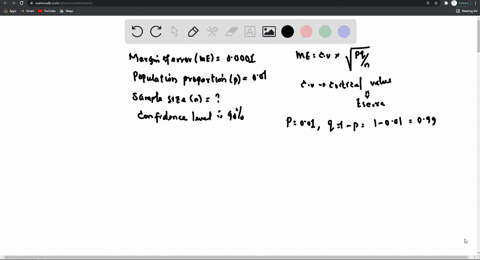 Apps Gmail YouTube Maps
Reading list
Margin of error (ME) = 0.0001
Population proportion (p) = 0.01
Sample size (n) = ?
Confidence level is 90%
ME = C.V × √Pq/n
C.V → Critical value
Z score
P = 0.01, q = 1 - p = 1 - 0.01 = 0.99